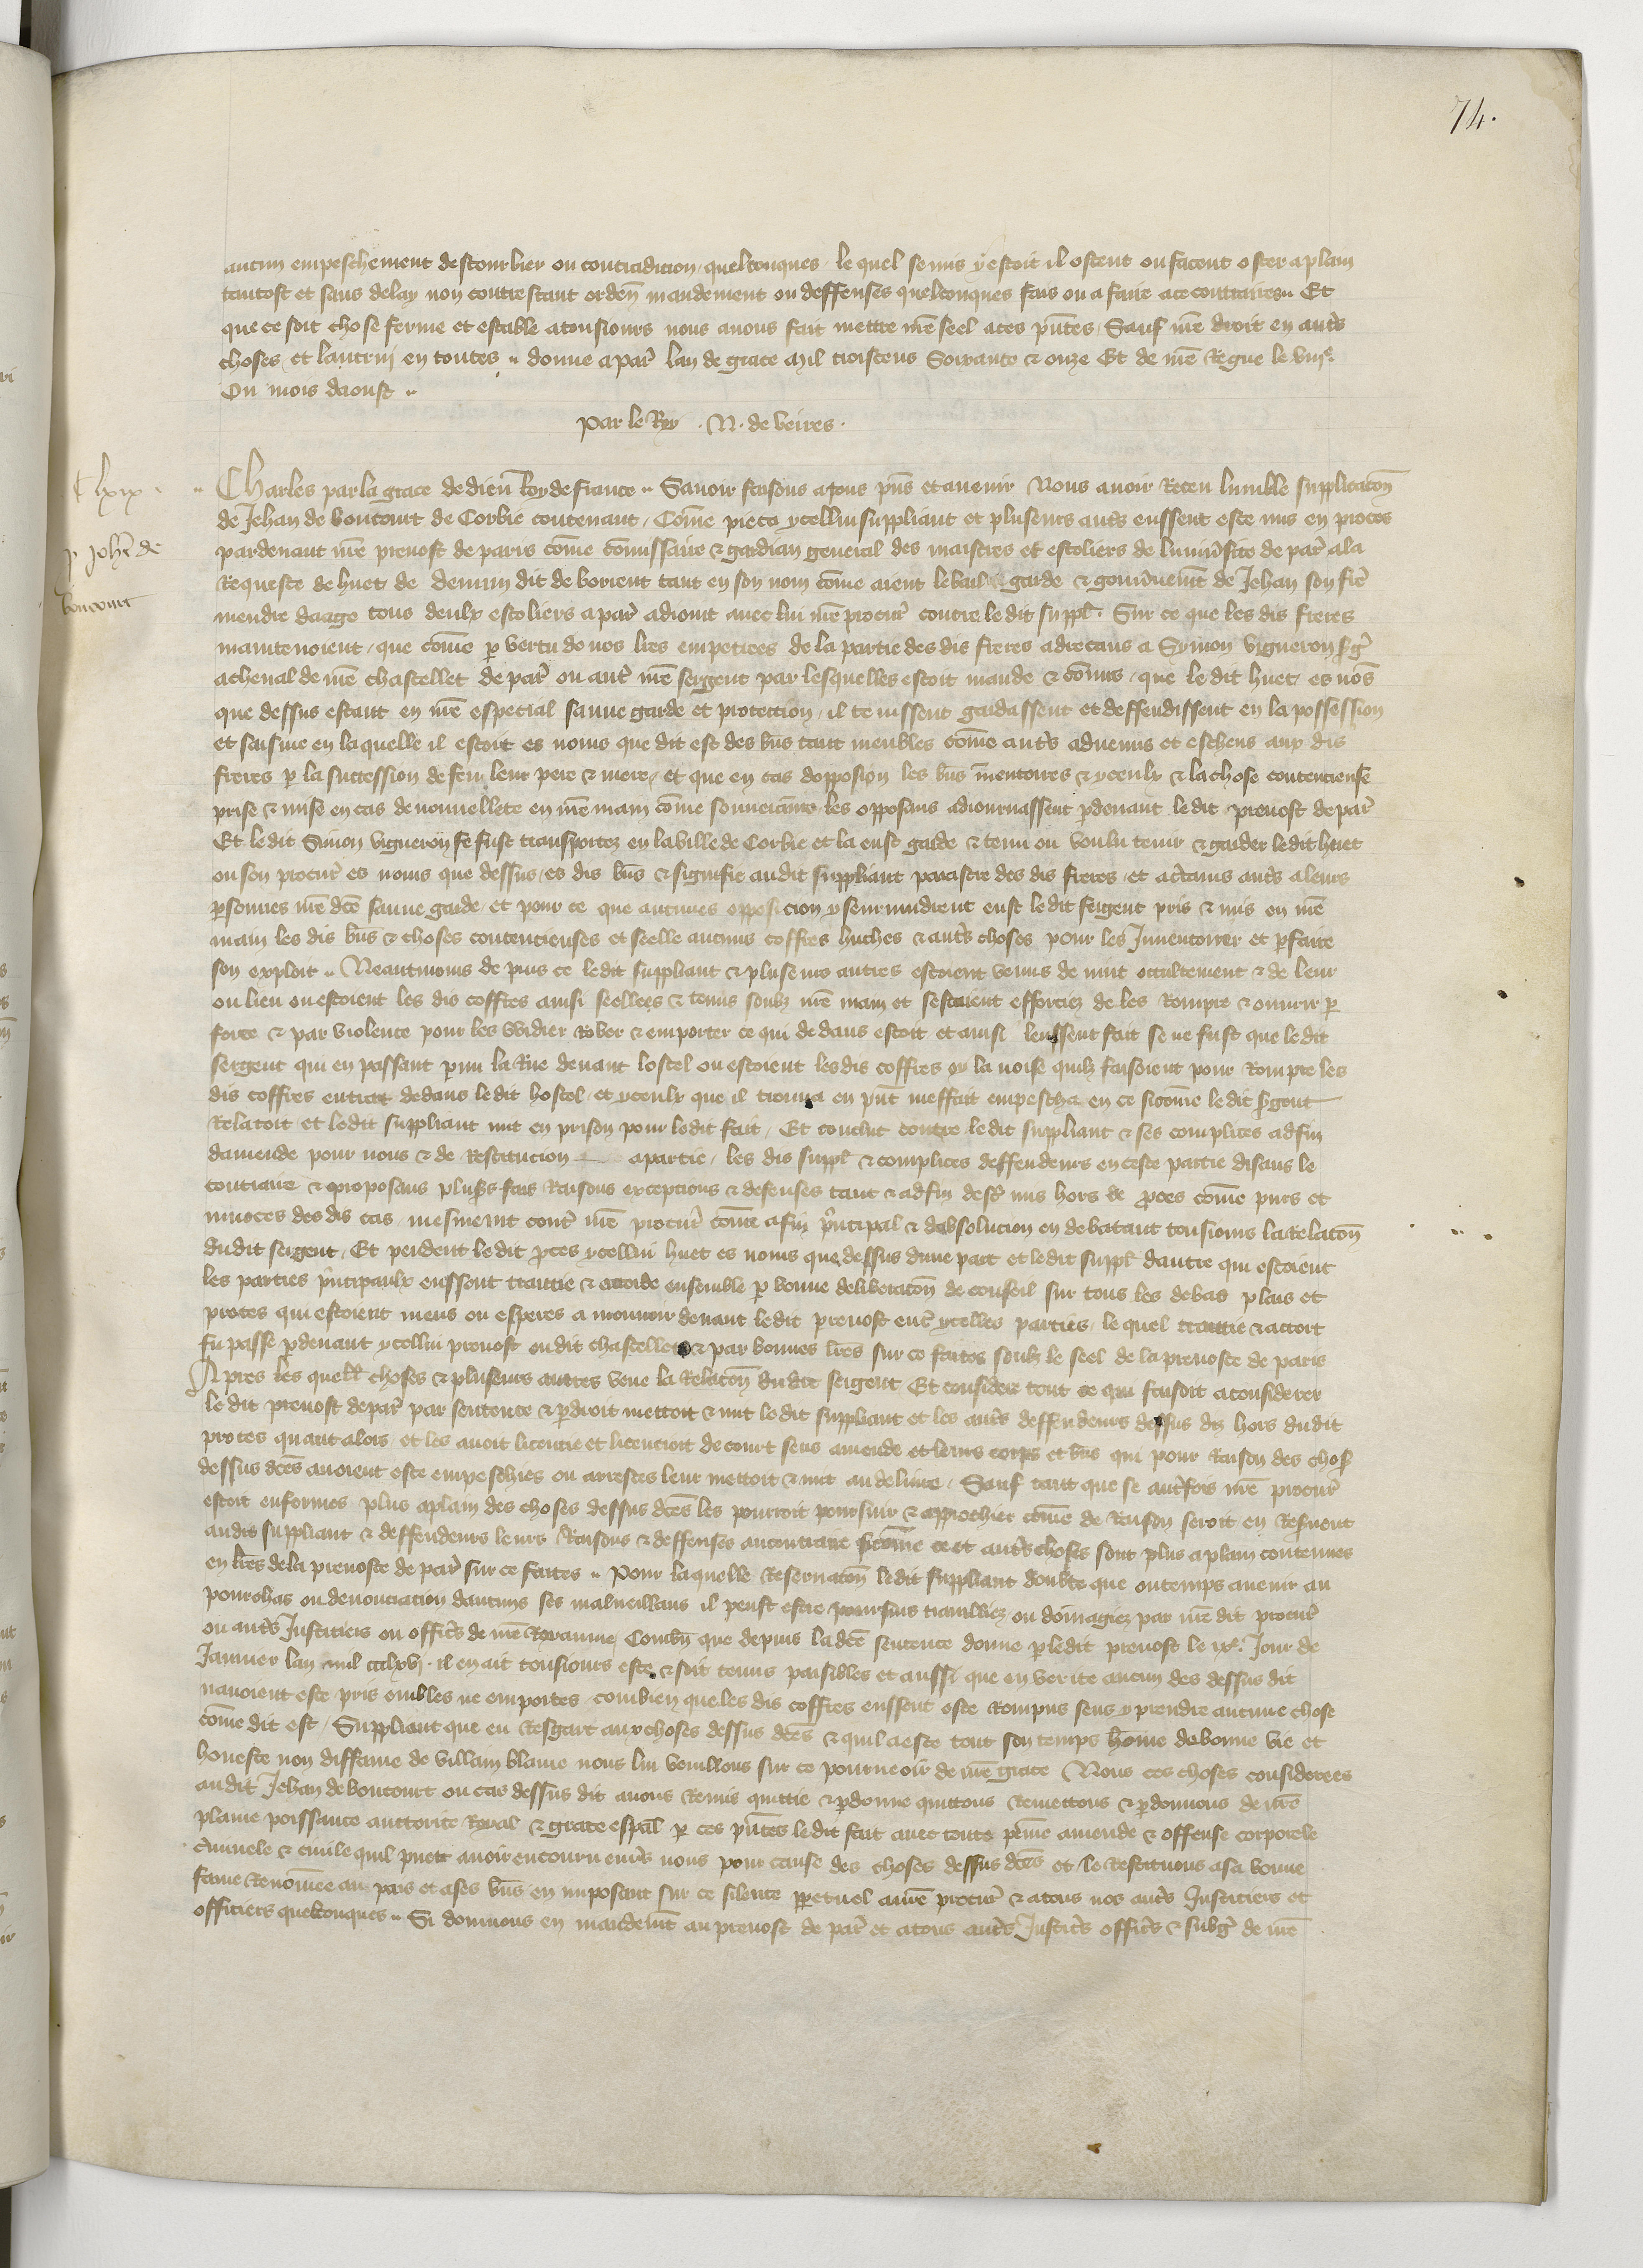 74.
aucun empeschement destourbier ou contradicion quelconques le quel se mis y estoit il ostent ou facent oster a plain
tantost et sans delay non contrestant orden̄ mandement ou deffenses quelconques fais ou a faire a ce contraires Et
que ce soit chose ferme et estable a tousiours nous auons fait mettre n̄re seel a ces p̄ntes Sauf n̄re droit en aut̄s
choses et lautruy en toutes donne a par̄ lan de grace mil troiscens Soixante & onze Et de n̄re Regne le viije
Ou mois daoust
par le Roy . N. de veires.
C lxix
p Joh̄e de
boucourt
Charles par la grace de dieu Roy de france Sauoir faisons a tous p̄ns et auenir Nous auoir Receu lumble supplicacōn
de Jehan de boucourt de Corbie contenant Cōme pieca ycellui suppliant et pluseurs aut̄s eussent este mis en proces
pardeuant n̄re preuost de paris cōme cōmissaire & gardian general des maistres et escoliers de luniūsite de par̄ a la
Requeste de huet de demuin dit de borient tant en son nom cōme aient le bail garde & gouūnem̄t de Jehan son fr̄e
mendre daage tous deulx escoliers a par̄ adioint auec lui n̄re procur̄ contre le dit suppl̄. Sur ce que les dis freres
maintenoient que cōme p vertu de nos l̄res empetrees de la partie des dis freres adrecans a Symon vigneron s̄ḡ
a cheual de n̄re chastellet de par̄ ou aut̄ n̄re sergent par lesquelles estoit mande & cōmis que le dit huet es nōs
que dessus estant en n̄re especial sauuegarde et proteccion il tenissent gardassent et deffendissent en la possession
et saisine en laquelle il estoit es noms que dit est des b̄ns tant meubles cōme aut̄s aduenus et escheus aux dis
freres p la succession de feu leur pere & mere et que en cas dopposion les b̄ns inuentoires & yceulx & la chose contencieuse
prise & mise en cas de nouuellete en n̄re main cōme souueraine les opposans adiournassent pdeuant le dit preuost de par̄
Et le dit Simon vigneron se fust transportez en la ville de Corbie et la eust garde & tenu ou voulu tenir & garder le dit huet
ou son procur̄ es noms que dessus es dis b̄ns & signifie au dit suppliant parastre des dis freres et a c̄tains aut̄s a leurs
psonnes n̄re dc̄e sauuegarde et pour ce que aucunes opposicion y seuruindrent eust le dit sergent pris & mis en n̄re
main les dis b̄ns & choses contencieuses et seelle aucuns coffres huches & aut̄s choses pour les Inuentorier et pfaire
son exploit Neantmoins depuis ce le dit suppliant & pluseurs autres estoient venus de nuit occultement & de leur
ou lieu ou estoient les dis coffres ainsi seellees & tenus soubz n̄re main et sestoient efforciez de les Rompre & ouurir p
force & par violence pour les widier Rober & emporter ce qui dedans estoit et ainsi leussent fait se ne fust que le dit
sergent qui en passant pmi la Rue deuant lostel ou estoient les dis coffres oy la noise quilz faisoient pour Rompre les
dis coffres entrat dedans le dit hostel et yceulx que il trouua en p̄nt meffait empescha en ce sicōme le dit s̄gent
Relatoit et le dit suppliant mit en prison pour le dit fait Et conclut contre le dit suppliant & ses complices ad fin
damende pour nous & de Restitucion a partie les dis suppl̄ & complices deffendeurs en ceste partie disans le
contraire & proposans plus̄s fais Raisons excepcions & defenses tant & ad fin dest̄ mis hors de p̄ces cōme purs et
innoces des dis cas mesmem̄t cont̄ n̄re procur̄ cōme a fin p̄ncipal & dabsolucion en debatant tousiours la Relacōn
du dit sergent Et pendent le dit p̄ces ycellui huet es noms que dessus dune part et le dit suppl̄ dautre qui estoient
les parties p̄ncipaulx eussent traittie & acorde ensemble p bonne deliberacōn de conseil sur tous les debas plais et
proces qui estoient meus ou esperes a mouuoir deuant le dit preuost ent̄ ycelles parties le quel traittie & accort
fu passe pdeuant ycellui preuost ou dit chastellet & par bonnes l̄res sur ce faites soubz le seel de la preuoste de paris
Apres les quell̄ choses & pluseurs autres veue la Relacōn du dit sergent Et considere tout ce qui faisoit a considerer
le dit preuost de par̄ par sentence & pdroit mettoit & mit le dit suppliant et les aut̄s deffendeurs dessus dis hors du dit
proces quant alors et les auoit licencie et licencioit de court sens amende et leurs corps et b̄ns qui pour Raison des chos̄
dessus dc̄es auoient este empeschies ou arrestes leur mettoit & mit au deliure Sauf tant que se aut̄fois n̄re procur̄
estoit enformes plus a plain des choses dessus dc̄es les pourroit poursuir & approchier cōme de Raison seroit en Reseruent
au dit suppliant & deffendeurs leurs Raisons & deffenses au contraire sicōme ce et aut̄s choses sont plus a plain contenues
en l̄res de la preuoste de par̄ sur ce faites Pour laquelle Reseruacōn le dit suppliant doubte que ou temps auenir au
pourchas ou denonciation daucuns ses malueillans il peust estre poursuis trauilliez ou domagiez par n̄re dit procur̄
ou aut̄s Justiciers ou offic̄s de n̄re Royaume Combn̄ que depuis la dc̄e sentence donne p le dit preuost le ixe. Jour de
Januier lan mil ccclxvj. il en ait tousiours este & soit tenus paisibles et aussi que en verite aucun des dessus dit
nauoient este pris embles ne emportes combien que les dis coffres eussent este Rompus sens y prendre aucune chose
cōme dit est Suppliant que en Resgart aux choses dessus dc̄es & quil a este tout son temps hōme de bonne vie et
honeste non diffame de villain blame nous lui veuillons sur ce pourueoir de n̄re grace Nous ces choses considerees
au dit Jehan de boucourt ou cas dessus dit auons Remis quittie & pdonne quittons Remettons & pdonnons de n̄re
plaine poissance auttorite Royal & grace esp̄al p ces p̄ntes le dit fait auec toute peine amende & offense corporele
Criminele & ciuile quil puet auoir encouru enūs nous pour cause des choses dessus dc̄es et le Restituons a sa bonne
fame Renōmee au pais et a ses b̄ns en imposant sur ce silence ppetuel a n̄re procur̄ & a tous nos aut̄s Justiciers et
officiers quelconques Si donnons en mandem̄t au preuost de par̄ et a tous aut̄s Justic̄s offic̄s & subḡ de n̄re